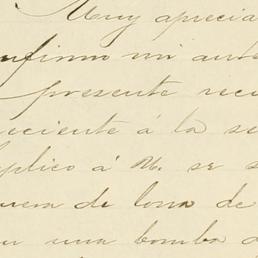 Muy aprecia
nfirmo mi ante
presente reci
neciente á la se
uplico á U. se s
uera de lona de
una bomba d